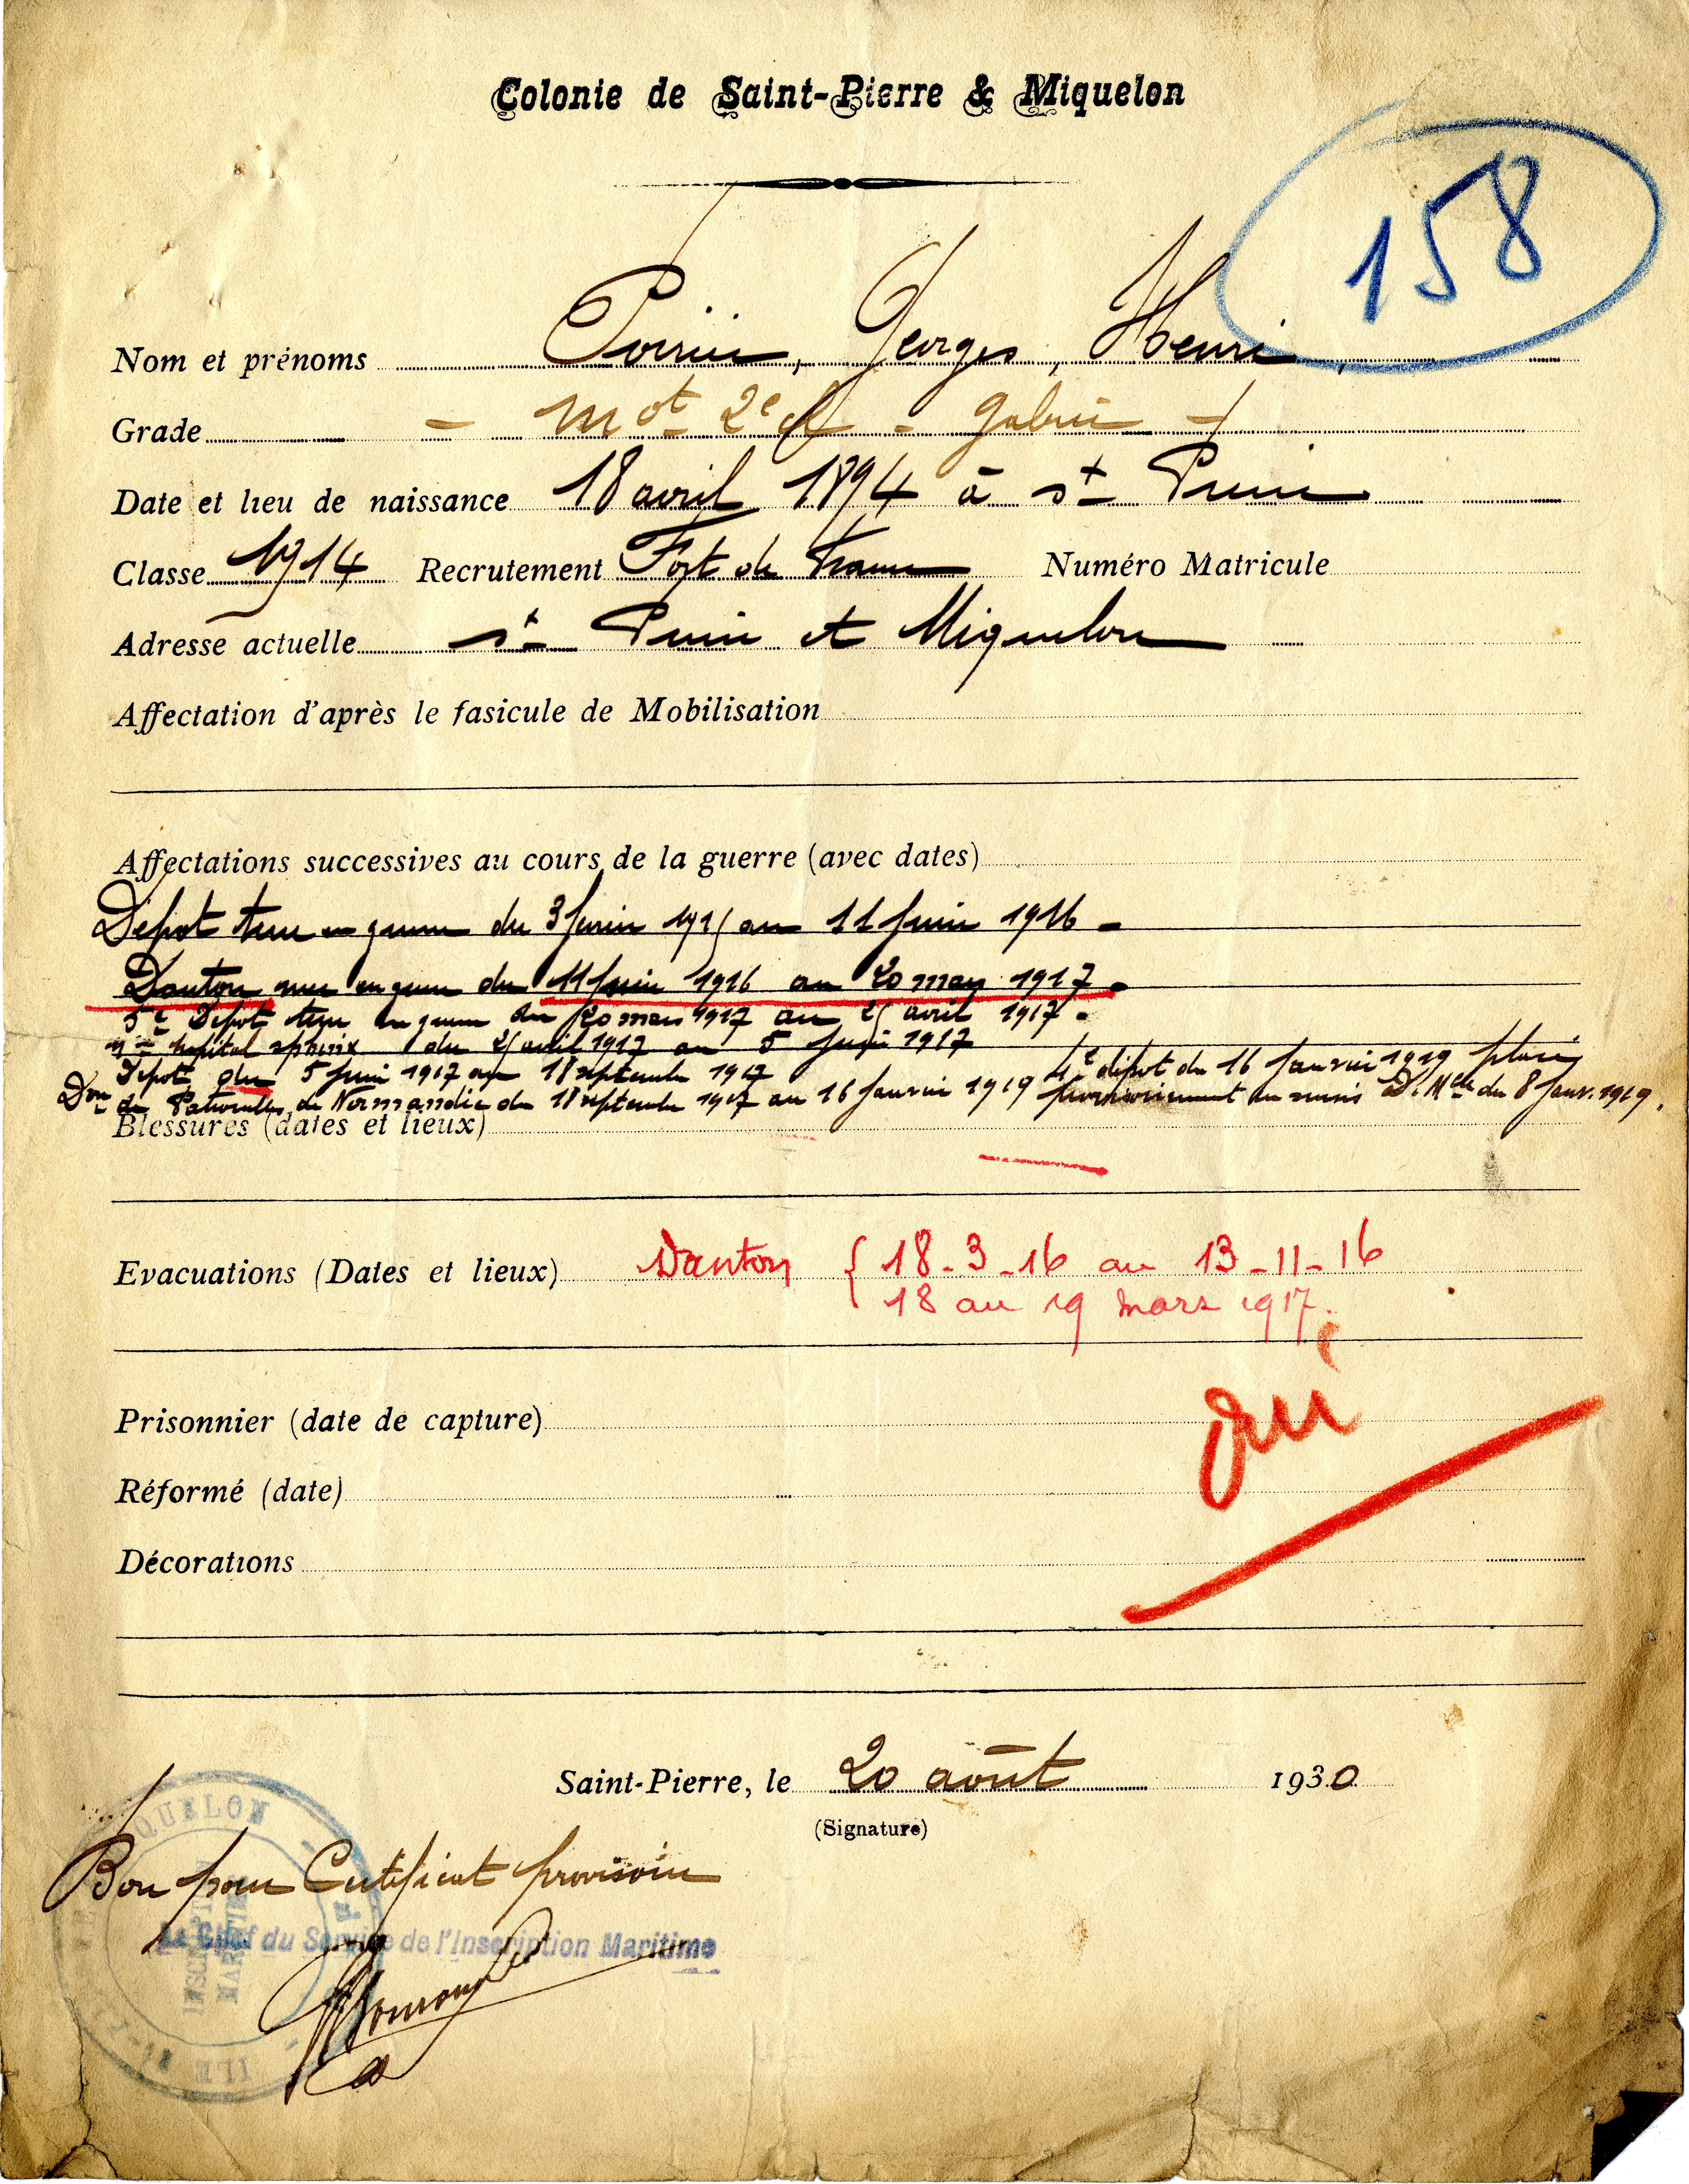 Colonie de Saint-Pierre & Miquelon
158
Nom et prénoms Poirier, Georges, Henri,
Grade - Mot 2e cl - gabier -
Date et lieu de naissance 18 avril 1894 à St Pierre
Classe 1914 Recrutement Fort de France Numéro Matricule
Adresse actuelle St Pierre et Miquelon
Affectation d'après le fasicule de Mobilisation
Affectations successives au cours de la guerre (avec dates)
Dépot terre en guerre du 3 février 1915 au 11 juin 1916 -
Danton mer en guerre du 11 juin 1916 au 20 mars 1917 -
5e Dépot terre en guerre du 20 mars 1917 au 25 avril 1917 -
hopital sphinx du 25 avril 1917 au 5 juin 1917
Dépot du 5 juin 1917 au 18 septembre 1917 4e dépot du 16 Janvier 1919 placé
Don de Patrouilles de Normandie du 18 septembre 1917 au 16 Janvier 1919 provisoirement en sursis D. Mlle du 8 Janv. 1919.
Blessures (dates et lieux)
Evacuations (Dates et lieux) Danton { 18-3-16 au 13-11-16
18 au 19 mars 1917.
Prisonnier (date de capture) oui
Réformé (date)
Décorations
Saint-Pierre, le 20 août 1930
(Signature)
Bon pour Certificat provisoire
Le Chef du Service de l'Inscription Maritime
INSCRIPTION
MARITIME